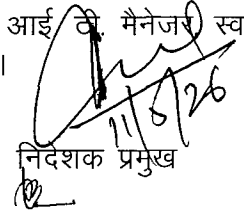 आई टी. मैनेजर स्व
।
11/6/26
निदेशक प्रमुख